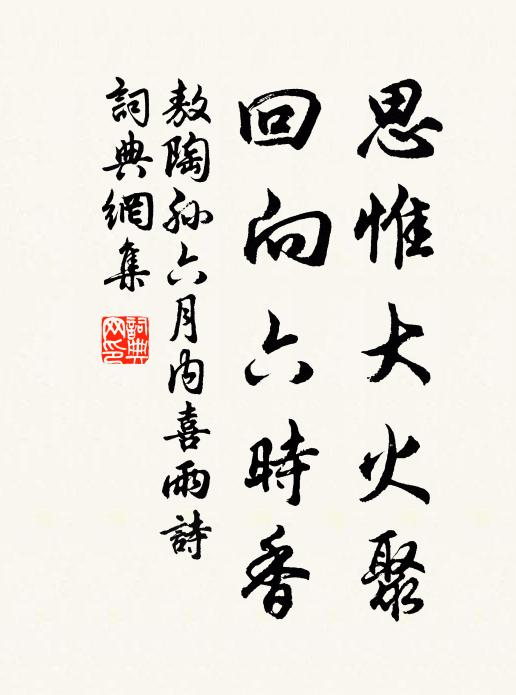 思惟大火聚
回向六時香
敖陶孫六月內喜雨詩
詞典網集
詞典网印